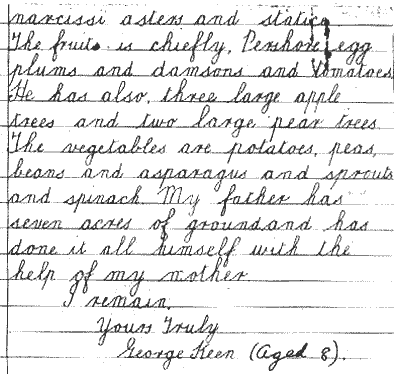 narcissi asters and statice
The fruit is chiefly, Pershore egg
plums and damsons and tomatoes
He has also, three large apple
trees and two large pear trees
The vegetables are potatoes, peas,
beans and asparagus and sprouts
and spinach. My father has
seven acres of groundand has
done it all himself with the
help of my mother
I remain,
Yours Truly
George Keen (Aged 8).